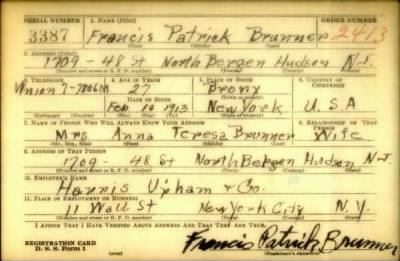 SERIAL NUMBER 1. NAME (Print) ORDER NUMBER
3387 Francis Patrick Brunner 2413
(First) (Middle) (Last)
2. ADDRESS (Print)
1709 - 48 St North Bergen Hudson N.J.
(Number and street or R. F. D. number) (Town) (County) (State)
3. TELEPHONE 4. AGE IN YEARS 5. PLACE OF BIRTH 6. COUNTRY OF CITIZENSHIP
Union 7-7806M 27 Bronx
DATE OF BIRTH (Town or county)
Feb 10 1913 New York U.S.A
(Exchange) (No.) (Mo.) (Day) (Yr.) (State or country)
7. NAME OF PERSON WHO WILL ALWAYS KNOW YOUR ADDRESS 8. RELATIONSHIP OF THAT PERSON
Mrs Anna Teresa Brunner Wife
(Mr., Mrs., Miss) (First) (Middle) (Last)
9. ADDRESS OF THAT PERSON
1709 - 48 St North Bergen Hudson N.J.
(Number and street or R. F. D. number) (Town) (County) (State)
10. EMPLOYER'S NAME
Harris Upham & Co.
11. PLACE OF EMPLOYMENT OR BUSINESS
11 Wall St New York City N.Y.
(Number and street or R. F. D. number) (Town) (County) (State)
I AFFIRM THAT I HAVE VERIFIED ABOVE ANSWERS AND THAT THEY ARE TRUE.
REGISTRATION CARD
D. S. S. Form 1 (over) Francis Patrick Brunner
(Registrant's signature)